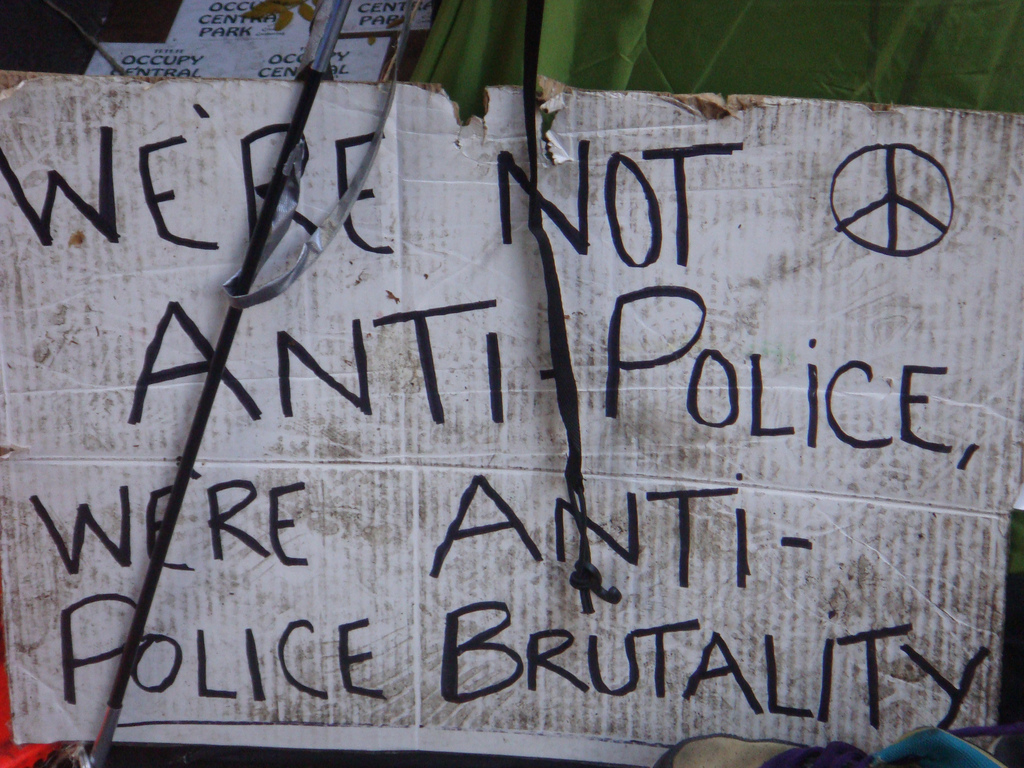 OCCUPY
CENTRAL
PARK
PARK
OCCUPY
CENTRAL
OCCUPY
CENTRAL
WE'RE NOT
ANTI-POLICE,
WE'RE ANTI-
POLICE BRUTALITY